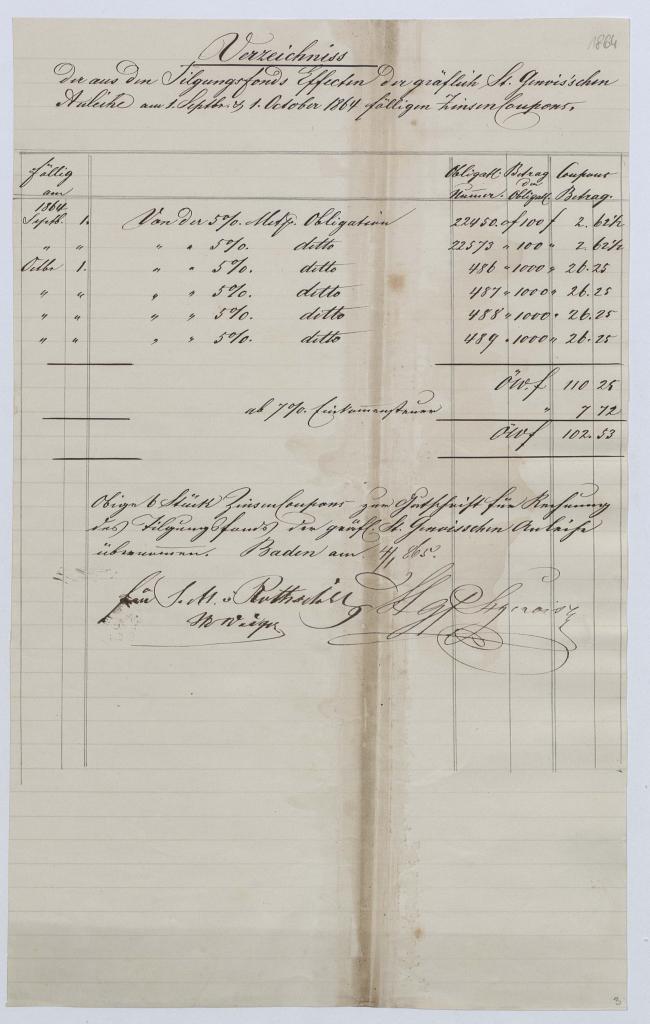 1864
Verzeichniss
der aus den Tilgungsfonds Effecten der gräflich St. Genois'schen
Anleihe am 1. Septbr. & 1. October 1864 fälligen Zinsen Coupons.
fällig am Obligatt. Nummer. Betrag der Obligatt. Coupons Betrag.
1864
Septb. 1. Von der 5%. Met. Obligation 22450. of 100 f 2. 62½
" " " " 5%. ditto 22573 " 100 " 2. 62½
Octbr 1. " " 5%. ditto 486 " 1000 " 26. 25
" " " " 5%. ditto 487 " 1000 " 26. 25
" " " " 5%. ditto 488 " 1000 " 26. 25
" " " " 5%. ditto 489 " 1000 " 26. 25
ÖW. f 110 25
ab 7%. Einkommensteuer " 7 72
ÖW f 102. 53
Obige 6 Stück Zinsen Coupons zur Gutschrift für Rechnung
des Tilgungsfonds der gräfl. St. Genoisschen Anleihe
übernomen. Baden am 4/1 865.
für S. M. v Rothschild
3